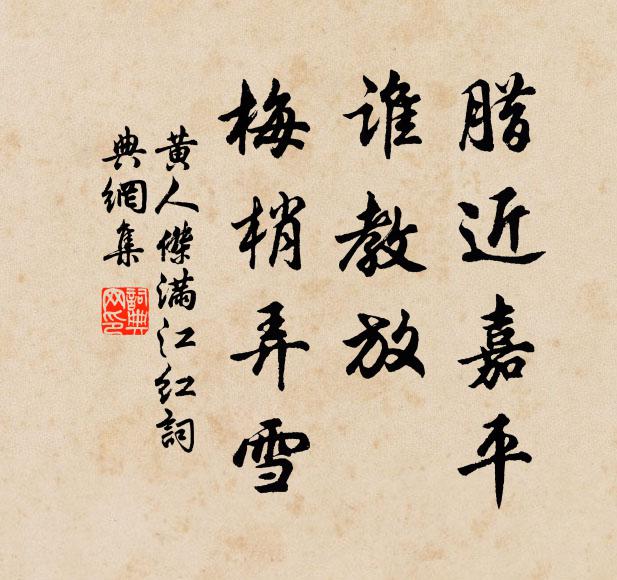 腊近嘉平
谁教放
梅梢弄雪
黄人杰满江红词
典网集
詞典
网印